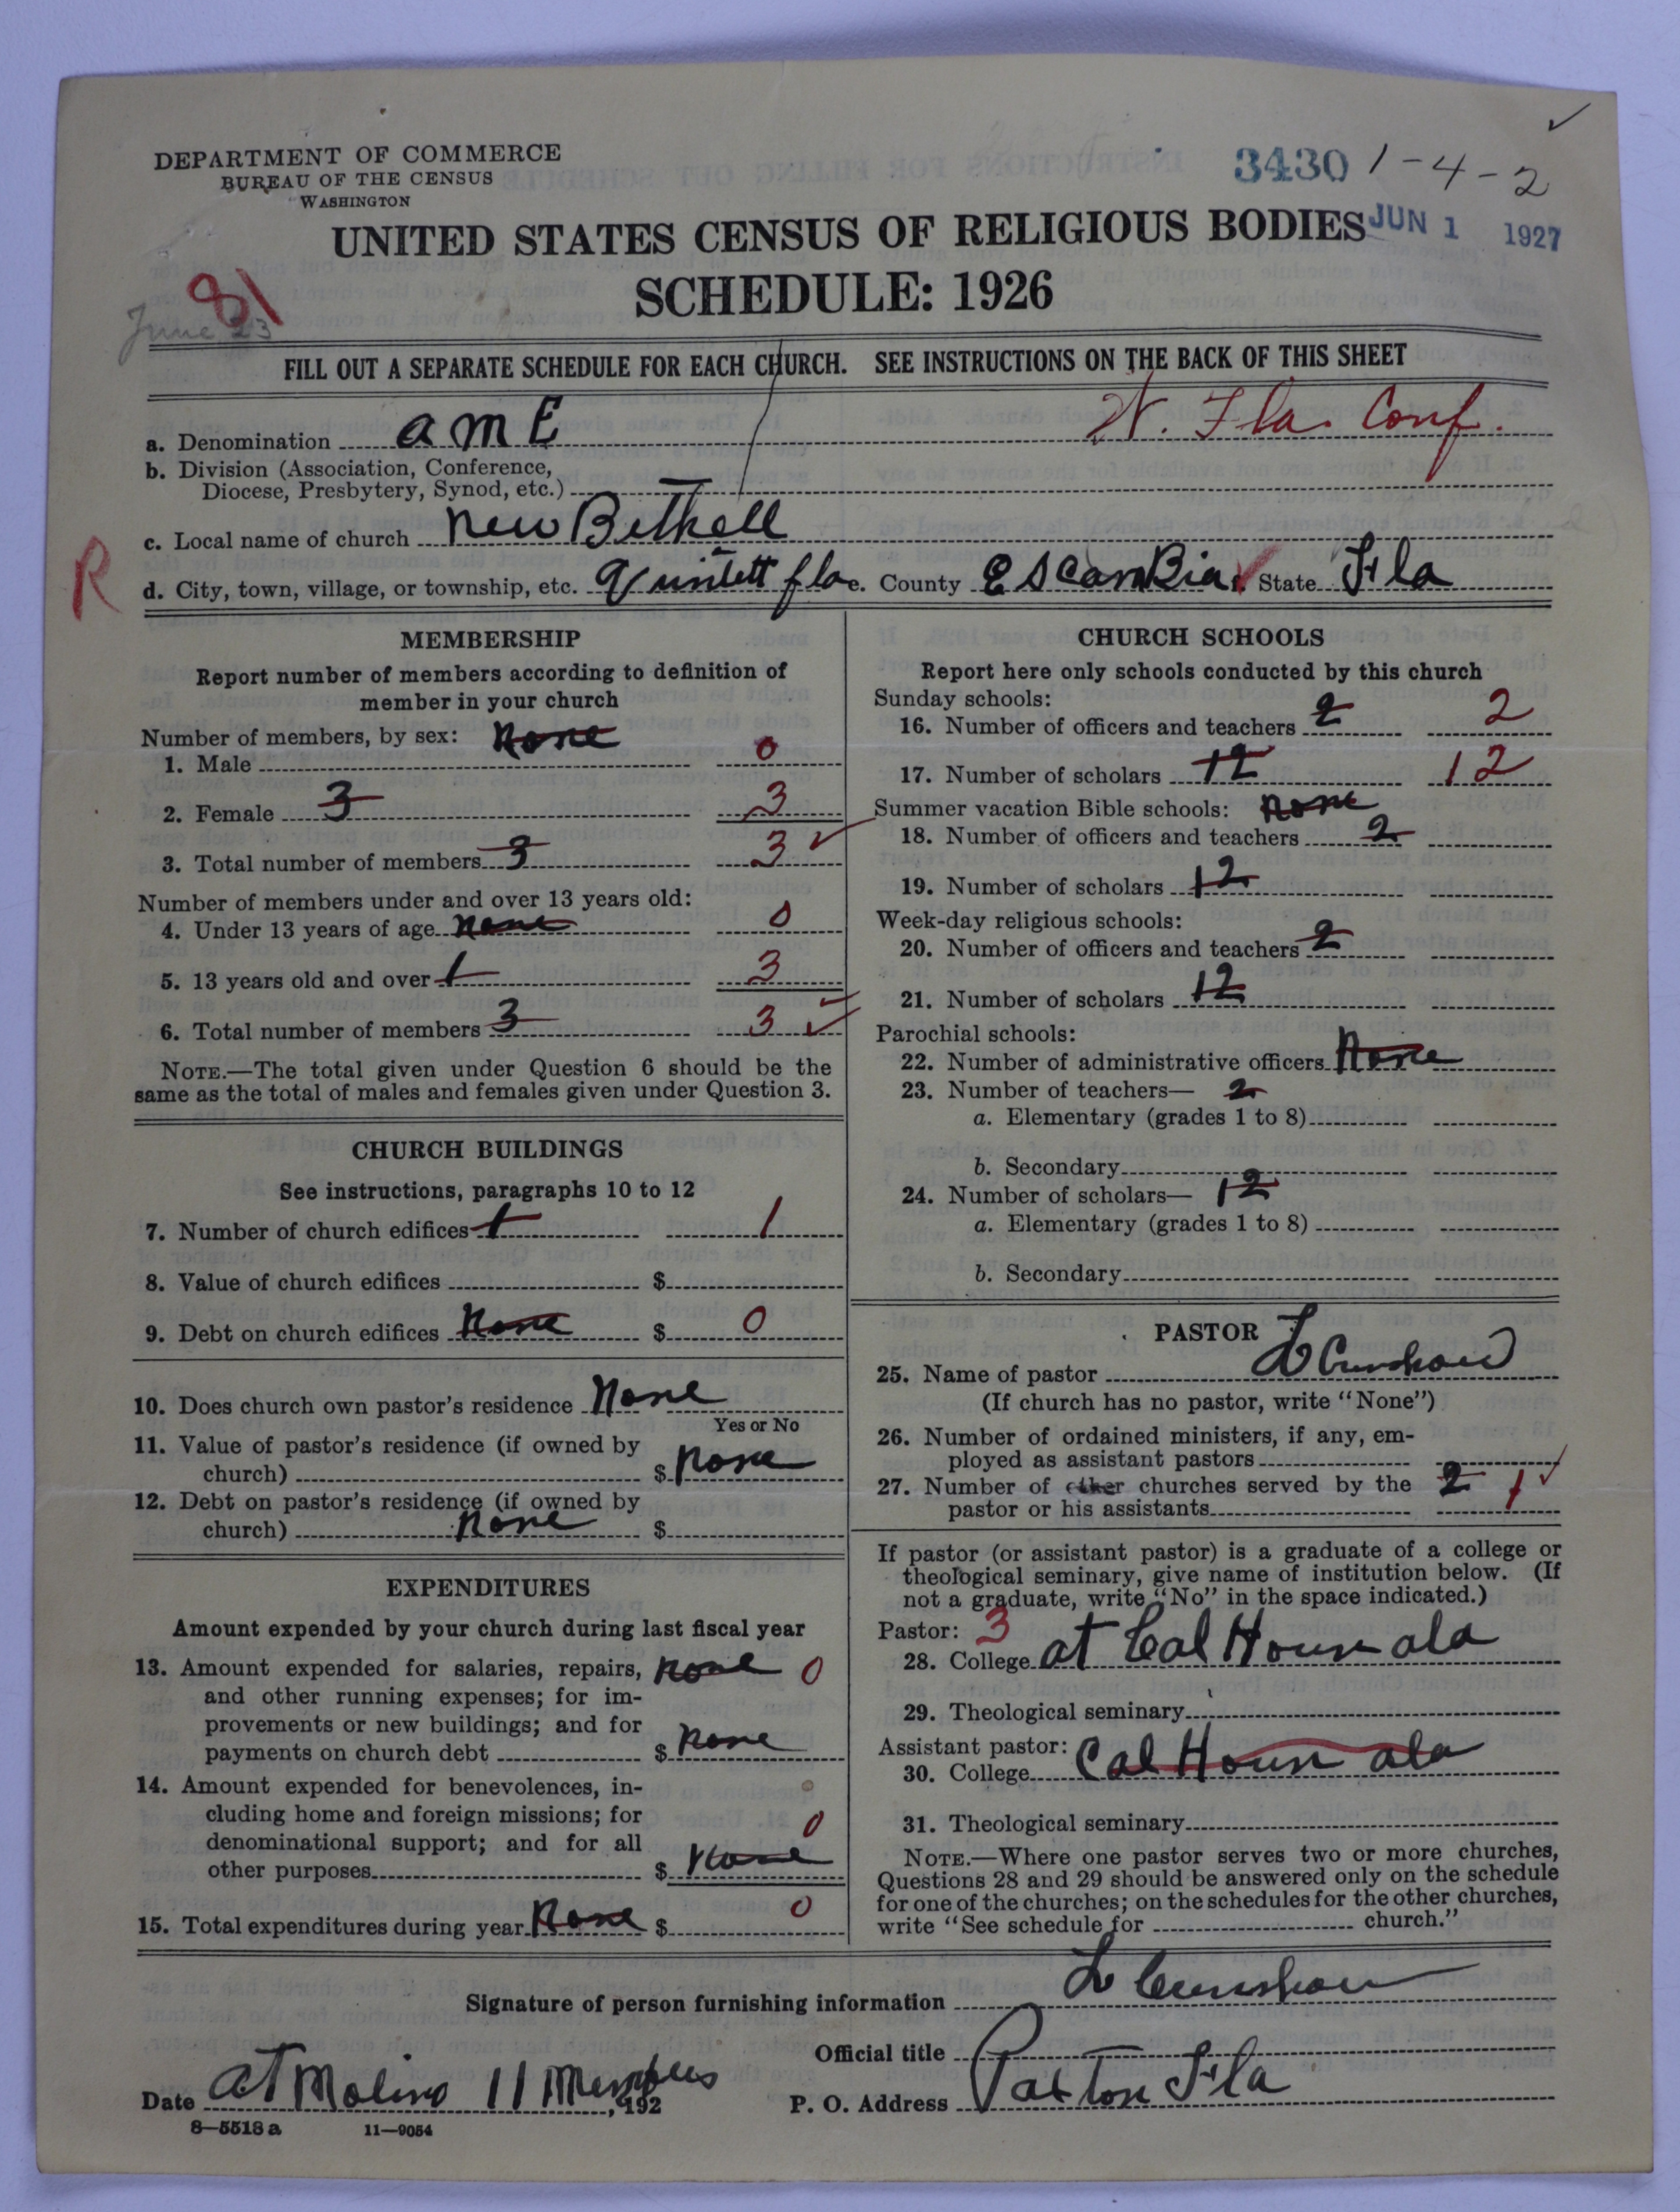 DEPARTMENT OF COMMERCE
BUREAU OF THE CENSUS
WASHINGTON
3430 1-4-2
UNITED STATES CENSUS OF RELIGIOUS BODIES
JUN 1 1927
SCHEDULE: 1926
81
June 23
FILL OUT A SEPARATE SCHEDULE FOR EACH CHURCH. SEE INSTRUCTIONS ON THE BACK OF THIS SHEET
a. Denomination a m E W. Fla. Conf.
b. Division (Association, Conference,
Diocese, Presbytery, Synod, etc.)
c. Local name of church New Bethell
R
d. City, town, village, or township, etc. Quintett fla e. County EscamBia f. State Fla
MEMBERSHIP
Report number of members according to definition of
member in your church
Number of members, by sex: None
1. Male 0
2. Female 3 3
3. Total number of members 3 3 ✓
Number of members under and over 13 years old:
4. Under 13 years of age None 0
5. 13 years old and over 1 3
6. Total number of members 3 3 ✓
NOTE.—The total given under Question 6 should be the
same as the total of males and females given under Question 3.
CHURCH BUILDINGS
See instructions, paragraphs 10 to 12
7. Number of church edifices 1 1
8. Value of church edifices $
9. Debt on church edifices None $ 0
10. Does church own pastor's residence None
Yes or No
11. Value of pastor's residence (if owned by
church) $ None
12. Debt on pastor's residence (if owned by
church) None $
EXPENDITURES
Amount expended by your church during last fiscal year
13. Amount expended for salaries, repairs, None 0
and other running expenses; for im-
provements or new buildings; and for
payments on church debt $ None
14. Amount expended for benevolences, in-
cluding home and foreign missions; for 0
denominational support; and for all
other purposes $ None
15. Total expenditures during year None $ 0
CHURCH SCHOOLS
Report here only schools conducted by this church
Sunday schools:
16. Number of officers and teachers 2 2
17. Number of scholars 12 12
Summer vacation Bible schools: None
18. Number of officers and teachers 2
19. Number of scholars 12
Week-day religious schools:
20. Number of officers and teachers 2
21. Number of scholars 12
Parochial schools:
22. Number of administrative officers None
23. Number of teachers— 2
a. Elementary (grades 1 to 8)
b. Secondary
24. Number of scholars— 12
a. Elementary (grades 1 to 8)
b. Secondary
PASTOR
25. Name of pastor L Crunshaw
(If church has no pastor, write "None")
26. Number of ordained ministers, if any, em-
ployed as assistant pastors
27. Number of other churches served by the 2 1 ✓
pastor or his assistants
If pastor (or assistant pastor) is a graduate of a college or
theological seminary, give name of institution below. (If
not a graduate, write "No" in the space indicated.)
Pastor: 3
28. College at Cal Houn ala
29. Theological seminary
Assistant pastor:
30. College Cal Houn ala
31. Theological seminary
NOTE.—Where one pastor serves two or more churches,
Questions 28 and 29 should be answered only on the schedule
for one of the churches; on the schedules for the other churches,
write "See schedule for church."
Signature of person furnishing information L Crunshaw
Official title
Date at Molino 11 Members, 192
P. O. Address Paxton Fla
8—5518 a 11—9054